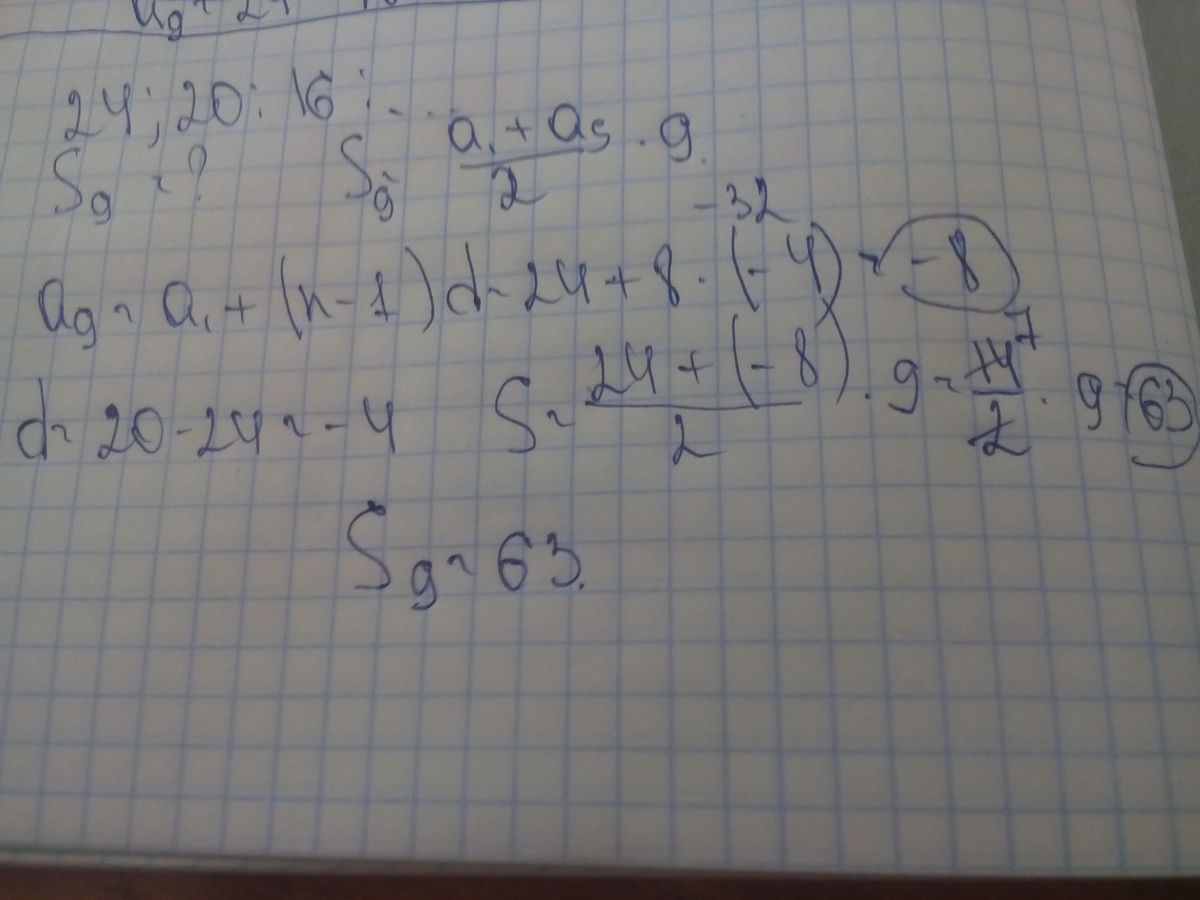 24; 20; 16; ...
S₉ = ? S₉ = (a₁ + a₉)/2 · 9.
-32
a₉ = a₁ + (n-1)d = 24 + 8 · (-4) = -8
d = 20 - 24 = -4 S = (24 + (-8))/2 · 9 = 14/2 · 9 = 63
7
S₉ = 63.